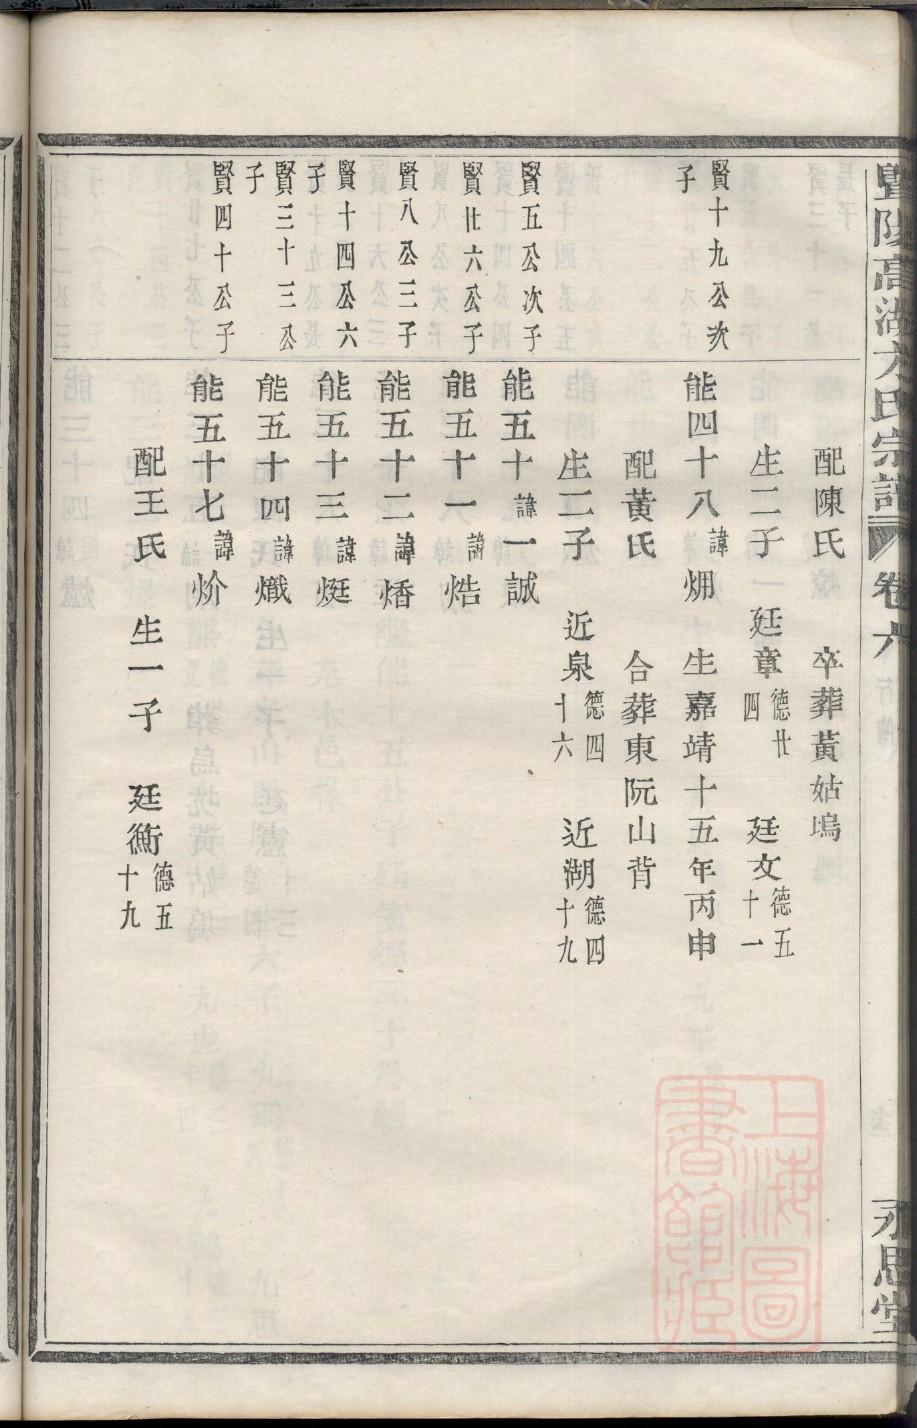 暨陽高湖方氏宗譜 卷六 永思堂
配陳氏 卒葬黃姑塢
生二子 廷章德廿四 廷文德五十一
賢十九公次子
能四十八諱𤇾 生嘉靖十五年丙申
配黃氏 合葬東阮山背
生二子 近泉德四十六 近湖德四十九
賢五公次子 能五十諱一誠
賢廿六公子 能五十一諱焅
賢八公三子 能五十二諱𤋱
賢十四公六子 能五十三諱烶
賢三十三公子 能五十四諱熾
賢四十公子 能五十七諱炌
配王氏 生一子 廷衡德五十九
上海圖書館藏